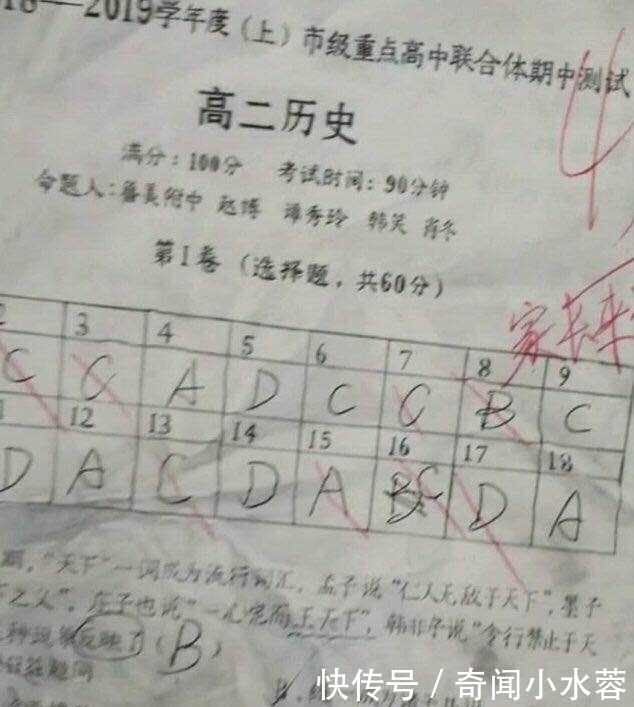 18—2019学年度（上）市级重点高中联合体期中测试
高二历史
满分：100分 考试时间：90分钟
命题人：鲁美附中 赵博 谭秀玲 韩笑 肖冬
第I卷（选择题，共60分）
家长来
2 3 4 5 6 7 8 9
C C A D C C B C
1 12 13 14 15 16 17 18
D A C D A C D A
期，“天下”一词成为流行词汇，孟子说“仁人无敌于天下”，墨子
下之父”，庄子也说“一心定而王天下”，韩非子说“令行禁止于天
种现象反映了（B）
快传号 / 奇闻小水蓉